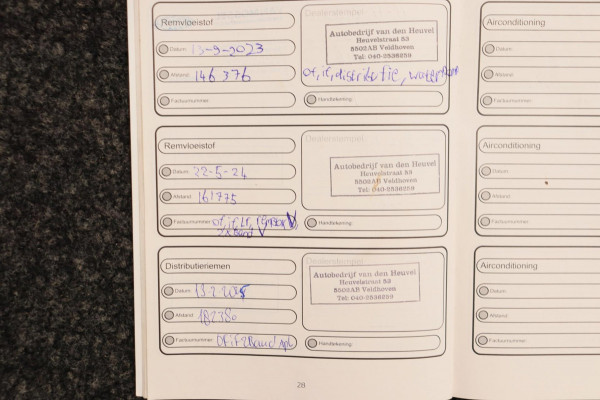 Remvloeistof
Dealerstempel
Airconditioning
Datum: 13-9-2023
Autobedrijf van den Heuvel
Heuvelstraat 53
5502AB Veldhoven
Tel: 040-2538259
Datum:
Afstand: 146376
of, if, distributie, waterpomp
Afstand:
Factuurnummer:
Handtekening:
Factuurnummer:
Remvloeistof
Dealerstempel
Airconditioning
Datum: 22-5-24
Autobedrijf van den Heuvel
Heuvelstraat 53
5502AB Veldhoven
Tel: 040-2538259
Datum:
Afstand: 161775
Afstand:
Factuurnummer: of, if, Lf,
2x band
Handtekening:
Factuurnummer:
Distributieriemen
Dealerstempel
Airconditioning
Datum: 13 2 2025
Autobedrijf van den Heuvel
Heuvelstraat 53
5502AB Veldhoven
Tel: 040-2538259
Datum:
Afstand: 182380
Afstand:
Factuurnummer: of if 2Band
Handtekening:
Factuurnummer:
28